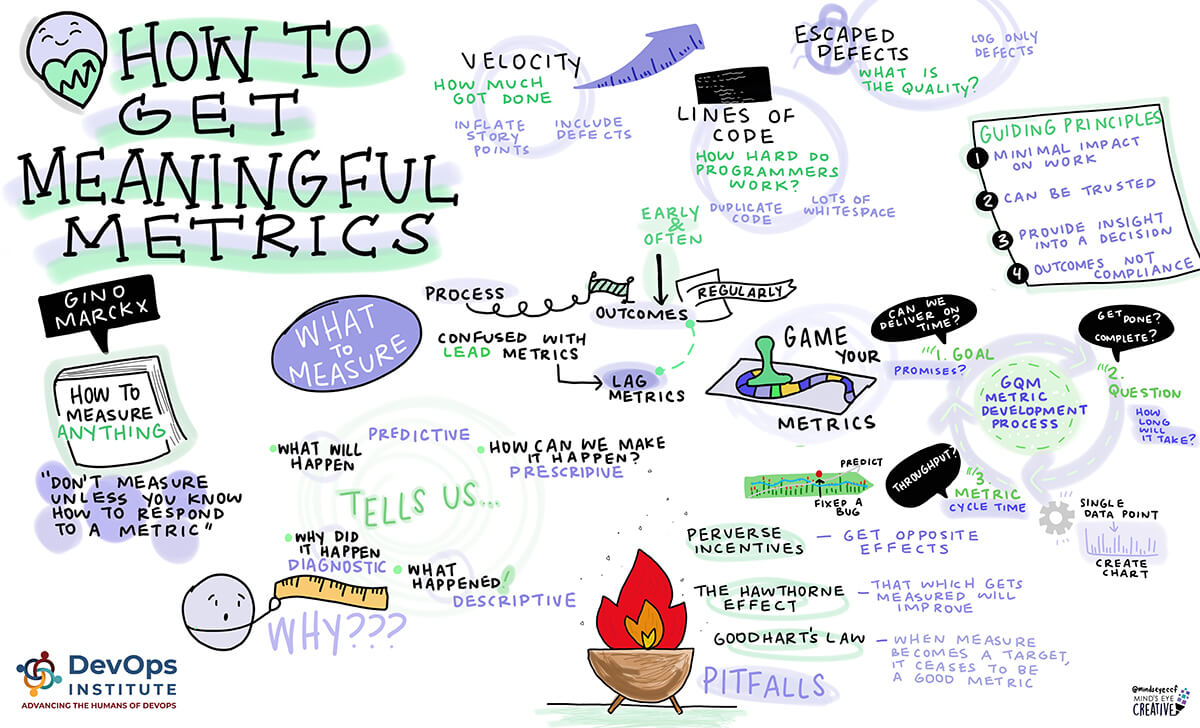 HOW TO
GET
MEANINGFUL
METRICS
GINO
MARCKX
HOW TO
MEASURE
ANYTHING
"DON'T MEASURE
UNLESS YOU KNOW
HOW TO RESPOND
TO A METRIC"
VELOCITY
HOW MUCH
GOT DONE
INFLATE
STORY
POINTS
INCLUDE
DEFECTS
LINES OF
CODE
HOW HARD DO
PROGRAMMERS
WORK?
DUPLICATE
CODE
LOTS OF
WHITESPACE
ESCAPED
DEFECTS
WHAT IS
THE QUALITY?
LOG ONLY
DEFECTS
GUIDING PRINCIPLES
1 MINIMAL IMPACT
ON WORK
2 CAN BE TRUSTED
3 PROVIDE INSIGHT
INTO A DECISION
4 OUTCOMES NOT
COMPLIANCE
WHAT
TO
MEASURE
EARLY
&
OFTEN
PROCESS
OUTCOMES
REGULARLY
CONFUSED WITH
LEAD METRICS
LAG
METRICS
GAME
YOUR
METRICS
CAN WE
DELIVER ON
TIME?
1. GOAL
PROMISES?
GET DONE?
COMPLETE?
2.
QUESTION
HOW
LONG
WILL
IT TAKE?
GQM
METRIC
DEVELOPMENT
PROCESS
THROUGHPUT?
3.
METRIC
CYCLE TIME
SINGLE
DATA POINT
CREATE
CHART
PREDICT
FIXED A
BUG
TELLS US...
WHAT WILL
HAPPEN
PREDICTIVE
HOW CAN WE MAKE
IT HAPPEN?
PRESCRIPIVE
WHY DID
IT HAPPEN
DIAGNOSTIC
WHAT
HAPPENED!
DESCRIPTIVE
WHY???
PERVERSE
INCENTIVES
— GET OPPOSITE
EFFECTS
THE HAWTHORNE
EFFECT
— THAT WHICH GETS
MEASURED WILL
IMPROVE
GOODHART'S LAW
— WHEN MEASURE
BECOMES A TARGET,
IT CEASES TO BE
A GOOD METRIC
PITFALLS
DevOps
INSTITUTE
ADVANCING THE HUMANS OF DEVOPS
@mindseyeccf
MIND'S EYE
CREATIVE